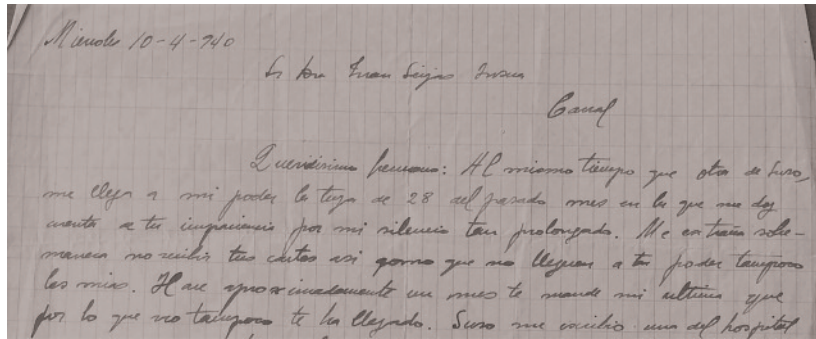 Miercoles 10-4-940
Sr Don Juan Seijas
Canal
Queridisimo hermano: Al mismo tiempo que otra de Suso,
me llega a mi poder la tuya de 28 del pasado mes en la que me doy
cuenta a tu impaciencia por mi silencio tan prolongado. Me extraña sobre-
manera no recibir tus cartas asi como que no lleguen a tu poder tampoco
las mias. Hace aproximadamente un mes te mande mi ultima que
por lo que veo tampoco te ha llegado. Suso me escribio una del hospital